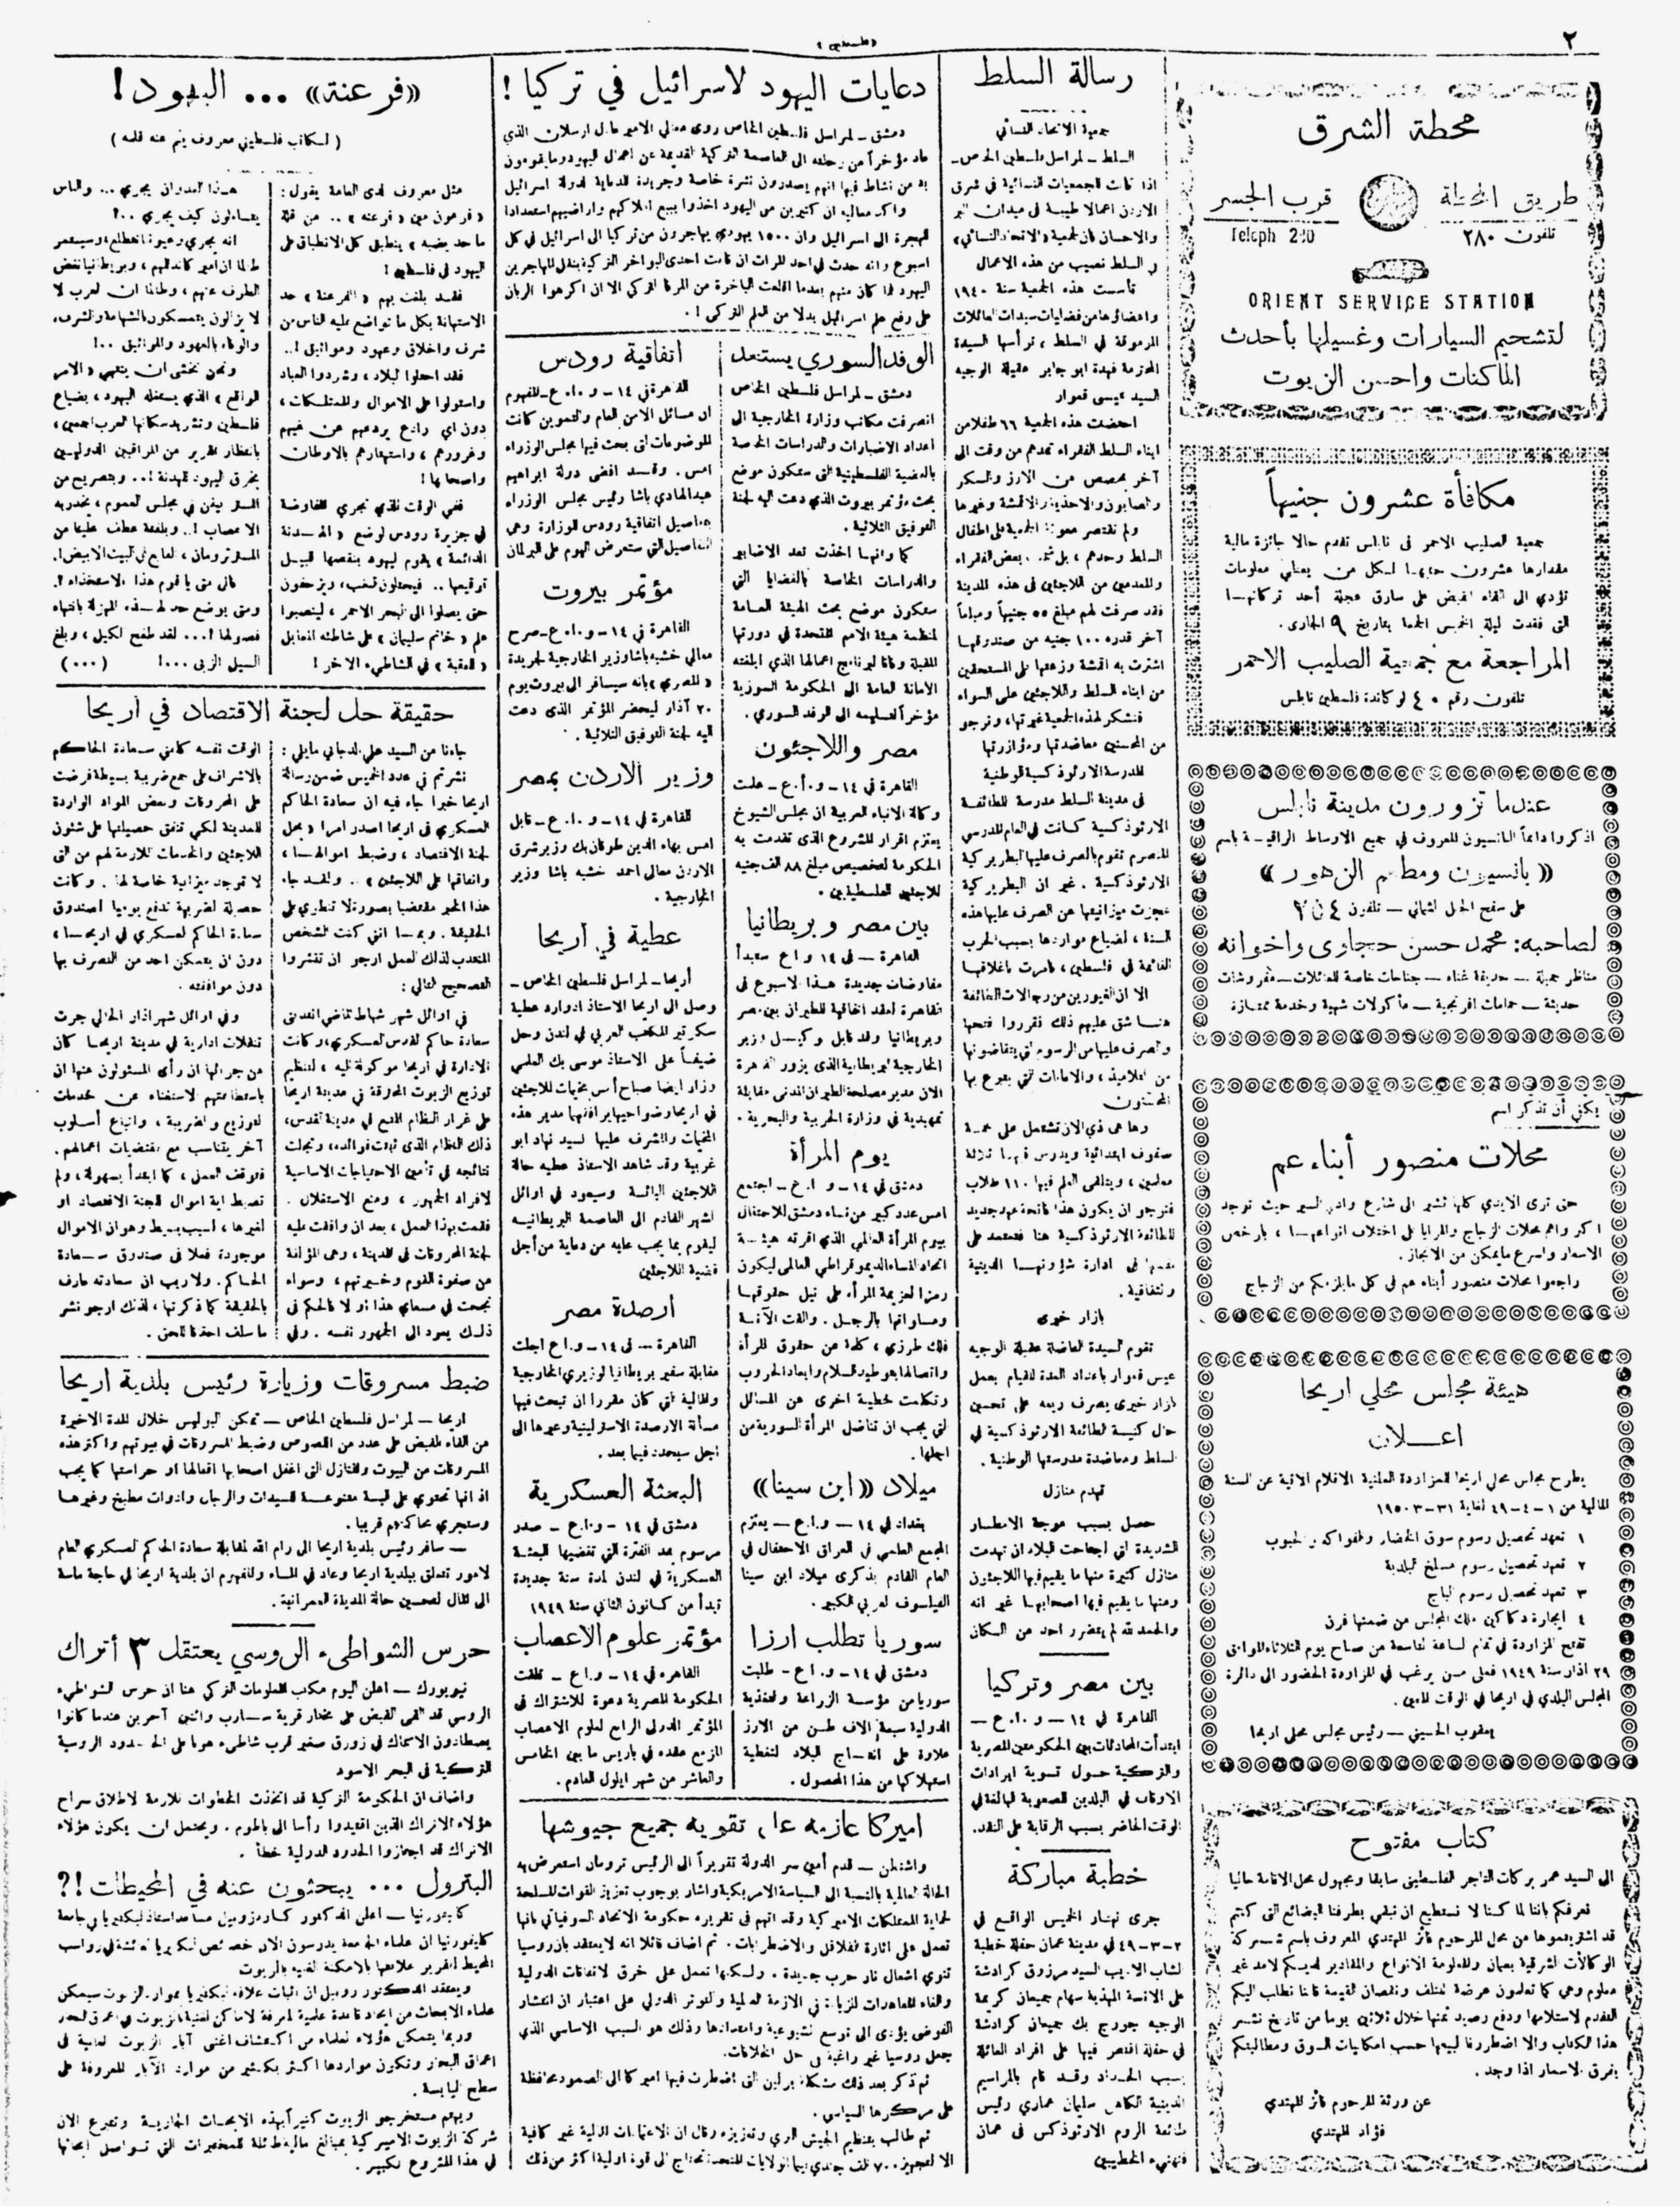 ٢
(فلسطين)
محطة الشرق
طريق المحطة
قرب الجسر
تلفون ٢٨٠
Teleph 280
ORIENT SERVICE STATION
لتشحيم السيارات وغسيلها بأحدث
الماكنات واحسن الزيوت
مكافأة عشرون جنيهاً
جمعية الصليب الاحمر في نابلس تقدم حالا جائزة مالية
مقدارها عشرون جنيها لكل من يعطي معلومات
تؤدي الى القاء القبض على سارق عجلة أحد تركاتها
التي فقدت ليلة الخميس الجمعة بتاريخ ٩ الجاري.
المراجعة مع جمعية الصليب الاحمر
تلفون رقم ٤٠ لوكاندة فلسطين نابلس
عندما تزورون مدينة نابلس
اذكروا دائماً البانسيون المعروف في جميع الاوساط الراقية باسم
«بانسيون ومطعم الزهور»
على سفح الجبل الشمالي — تلفون ٢٥٤
لصاحبه: محمد حسن حجاوي واخوانه
مناظر جميلة — حديقة غناء — جناحات خاصة للعائلات — مفروشات
حديثة — حمامات افرنجية — مأكولات شهية وخدمة ممتازة
يكفي أن تذكر اسم
محلات منصور أبناء عم
حتى ترى الايدي كلها تشير الى شارع وادي السير حيث توجد
اكبر واهم محلات الزجاج والمرايا على اختلاف انواعها، بارخص
الاسعار واسرع ما يمكن من الانجاز.
راجعوا محلات منصور أبناء عم في كل ما يلزمكم من الزجاج
هيئة مجلس محلي اريحا
اعلان
يطرح مجلس محلي اريحا للمزاودة العلنية الاقلام الاتية عن السنة
المالية من ١-٤-٤٩ لغاية ٣١-٣-١٩٥٠
١ تعهد تحصيل رسوم سوق الخضار والفواكه والحبوب
٢ تعهد تحصيل رسوم مسلخ البلدية
٣ تعهد تحصيل رسوم الباج
٤ ايجارة دكاكين ملك المجلس من ضمنها فرن
تفتح المزاودة في تمام الساعة التاسعة من صباح يوم الثلاثاء الموافق
٢٩ اذار سنة ١٩٤٩ فعلى من يرغب في المزاودة الحضور الى دائرة
المجلس البلدي في اريحا في الوقت المعين.
يعقوب الحسيني — رئيس مجلس محلي اريحا
كتاب مفتوح
الى السيد عمر بركات التاجر الفلسطيني سابقا ومجهول محل الاقامة حاليا
نعرفكم باننا لما كنا لا نستطيع ان نبقي بطرفنا البضائع التي كنتم
قد اشتريتموها من محل المرحوم فائز المهتدي المعروف باسم شركة
الوكالات الشرقية بعمان والمعلومة الانواع والمقادير لديكم لامد غير
معلوم وهي كما تعلمون عرضة للتلف ونقصان القيمة فاننا نطلب اليكم
التقدم لاستلامها ودفع رصيد ثمنها خلال ثلاثين يوما من تاريخ نشر
هذا الكتاب والا اضطررنا لبيعها حسب امكانيات السوق ومطالبتكم
بفرق الاسعار اذا وجد.
عن ورثة المرحوم فائز المهتدي
فؤاد المهتدي
رسالة السلط
جمعية الاتحاد النسائي
السلط - لمراسل فلسطين الخاص -
اذا كانت للجمعيات النسائية في شرق
الاردن اعمالا طيبة في ميدان البر
والاحسان فان لجمعية «الاتحاد النسائي»
في السلط نصيب من هذه الاعمال
تأسست هذه الجمعية سنة ١٩٤٠
واعضاؤها من فضليات سيدات العائلات
المرموقة في السلط، ترأسها السيدة
المحترمة فهدة ابو جابر عقيلة الوجيه
السيد عيسى قعوار
احضنت هذه الجمعية ٦٦ طفلا من
ابناء السلط الفقراء تمدهم من وقت الى
آخر بحصص من الارز والسكر
والصابون والاحذية والاقمشة وغيرها
ولم تقتصر معونة الجمعية على اطفال
السلط وحدهم، بل شملت بعض الفقراء
والمعدمين من اللاجئين في هذه المدينة
فقد صرفت لهم مبلغ ٥٥ جنيهاً ومبلغاً
آخر قدره ١٠٠ جنيه من صندوقها
اشترت به اقمشة وزعتها على المستحقين
من ابناء السلط واللاجئين على السواء
فنشكر لهذه الجمعية غيرتها، ونرجو
من المحسنين معاضدتها ومؤازرتها
المدرسة الارثوذكسية الوطنية
في مدينة السلط مدرسة للطائفة
الارثوذكسية كانت في العام المدرسي
المنصرم تقوم بالصرف عليها البطريركية
الارثوذكسية. غير ان البطريركية
عجزت ميزانيتها عن الصرف عليها هذه
السنة، لضياع مواردها بسبب الحرب
القائمة في فلسطين، فامرت باغلاقها
الا ان الغيورين من رجالات الطائفة
هنا شق عليهم ذلك فقرروا فتحها
والصرف عليها من الرسوم التي يتقاضونها
من التلاميذ، والاعانات التي يتبرع بها
المحسنون
وها هي ذي الان تشتمل على خمسة
صفوف ابتدائية ويدرس فيها ثلاثة
معلمين، ويتلقى العلم فيها ١١٠ طلاب
فنرجو ان يكون هذا فاتحة عهد جديد
للطائفة الارثوذكسية هنا فتعتمد على
نفسها في ادارة شؤونها الدينية
والثقافية.
بازار خيري
تقوم السيدة الفاضلة عقيلة الوجيه
عيسى قعوار باعداد العدة للقيام بعمل
بازار خيري يصرف ريعه على تحسين
حال كنيسة الطائفة الارثوذكسية في
السلط ومعاضدة مدرستها الوطنية.
تهدم منازل
حصل بسبب موجة الامطار
الشديدة التي اجتاحت البلاد ان تهدمت
منازل كثيرة منها ما يقيم فيها اللاجئون
ومنها ما يقيم فيها اصحابها غير انه
والحمد لله لم يتضرر احد من السكان
بين مصر وتركيا
القاهرة في ١٤ - و.ا.ع -
ابتدأت المحادثات بين الحكومتين المصرية
والتركية حول تسوية ايرادات
الاوقاف في البلدين الصعوبة البالغة في
الوقت الحاضر بسبب الرقابة على النقد.
خطبة مباركة
جرى نهار الخميس الواقع في
٣-٣-٤٩ في مدينة عمان حفلة خطبة
الشاب الاديب السيد مرزوق كرادشة
على الانسة المهذبة سهام جميعان كريمة
الوجيه جورج بك جميعان كرادشة
في حفلة اقتصر فيها على افراد العائلة
بسبب الحداد وقد قام بالمراسيم
الدينية الكاهن سليمان عماري رئيس
طائفة الروم الارثوذكس في عمان
فنهنيء الخطيبين
دعايات اليهود لاسرائيل في تركيا!
دمشق - لمراسل فلسطين الخاص روى معالي الامير عادل ارسلان الذي
عاد مؤخراً من رحلته الى العاصمة التركية القديمة عن اعمال اليهود وما يقومون
به من نشاط فيها انهم يصدرون نشرة خاصة وجريدة للدعاية لدولة اسرائيل
واكد معاليه ان كثيرين من اليهود اخذوا ببيع املاكهم واراضيهم استعدادا
للهجرة الى اسرائيل وان ١٥٠٠ يهودي يهاجرون من تركيا الى اسرائيل في كل
اسبوع وانه حدث في احد المرات ان قامت احدى البواخر التركية بنقل المهاجرين
اليهود فما كان منهم بعدما اقلعت الباخرة من المرفأ التركي الا ان اكرهوا الربان
على رفع علم اسرائيل بدلا من العلم التركي!.
الوفد السوري يستعد
دمشق - لمراسل فلسطين الخاص
انصرفت مكاتب وزارة الخارجية الى
اعداد الاضبارات والدراسات الخاصة
بالقضية الفلسطينية التي ستكون موضع
بحث مؤتمر بيروت الذي دعت اليه لجنة
التوفيق الثلاثية.
كما وانها اخذت تعد الاضابير
والدراسات الخاصة بالقضايا التي
ستكون موضع بحث الهيئة العامة
لمنظمة هيئة الامم المتحدة في دورتها
المقبلة وفقا لبرنامج اعمالها الذي ابلغته
الامانة العامة الى الحكومة السورية
مؤخراً لتسليمه الى الوفد السوري.
مصر واللاجئون
القاهرة في ١٤ - و.ا.ع - علمت
وكالة الانباء العربية ان مجلس الشيوخ
يعتزم اقرار المشروع الذي تقدمت به
الحكومة لتخصيص مبلغ ٨٨ الف جنيه
للاجئين الفلسطينيين.
بين مصر وبريطانيا
القاهرة - في ١٤ و.ا.ع ستبدأ
مفاوضات جديدة هذا الاسبوع في
القاهرة لعقد اتفاقية للطيران بين مصر
وبريطانيا ولقد قابل وكيل وزير
الخارجية البريطانية الذي يزور القاهرة
الان مدير مصلحة الطيران المدني مقابلة
تمهيدية في وزارة الحربية والبحرية.
يوم المرأة
دمشق في ١٤ - و.ا.ع - اجتمع
امس عدد كبير من نساء دمشق للاحتفال
بيوم المرأة العالمي الذي اقرته هيئة
اتحاد النساء الديموقراطي العالمي ليكون
رمزا لعزيمة المرأة على نيل حقوقها
ومساواتها بالرجل. والقت الآنسة
فلك طرزي، كلمة عن حقوق المرأة
واتصالها بتوطيد السلام وابعاد الحروب
وتكلمت خطيبة اخرى عن المسائل
التي يجب ان تناضل المرأة السورية من
اجلها.
ميلاد «ابن سينا»
بغداد في ١٤ - و.ا.ع - يعتزم
المجمع العلمي في العراق الاحتفال في
العام القادم بذكرى ميلاد ابن سينا
الفيلسوف العربي الكبير.
سوريا تطلب ارزا
دمشق في ١٤ - و.ا.ع - طلبت
سوريا من مؤسسة الزراعة والتغذية
الدولية سبعة الاف طن من الارز
علاوة على انتاج البلاد لتغطية
استهلاكها من هذا المحصول.
اتفاقية رودس
القاهرة في ١٤ - و.ا.ع - المفهوم
ان مسائل الامن العام والتموين كانت
الموضوعات التي بحث فيها مجلس الوزراء
امس. وقد افضى دولة ابراهيم
عبد الهادي باشا رئيس مجلس الوزراء
بتفاصيل اتفاقية رودس للوزارة وهي
التفاصيل التي ستعرض اليوم على البرلمان
مؤتمر بيروت
القاهرة في ١٤ - و.ا.ع - صرح
معالي خشبه باشا وزير الخارجية لجريدة
«المصري» بانه سيسافر الى بيروت يوم
٢٠ آذار ليحضر المؤتمر الذي دعت
اليه لجنة التوفيق الثلاثية.
وزير الاردن بمصر
القاهرة في ١٤ - و.ا.ع - قابل
امس بهاء الدين طوقان بك وزير شرق
الاردن معالي احمد خشبه باشا وزير
الخارجية.
عطية في أريحا
أريحا - لمراسل فلسطين الخاص -
وصل الى اريحا الاستاذ ادوارد عطية
سكرتير المكتب العربي في لندن وحل
ضيفاً على الاستاذ موسى بك العلمي
وزار ايضا صباح أمس مخيمات اللاجئين
في اريحا وضواحيها يرافقها مدير هذه
المخيمات والمشرف عليها السيد نهاد ابو
غربية وقد شاهد الاستاذ عطيه حالة
اللاجئين البائسة وسيعود في اوائل
الشهر القادم الى العاصمة البريطانية
ليقوم بما يجب عليه من دعاية من أجل
قضية اللاجئين
أرصدة مصر
القاهرة - في ١٤ - و.ا.ع اجلت
مقابلة سفير بريطانيا لوزيري الخارجية
والمالية التي كان مقررا ان تبحث فيها
مسألة الارصدة الاسترلينية وغيرها الى
اجل سيحدد فيما بعد.
البعثة العسكرية
دمشق في ١٤ - و.ا.ع - صدر
مرسوم بمد الفترة التي تقضيها البعثة
العسكرية في لندن لمدة سنة جديدة
تبدأ من كانون الثاني سنة ١٩٤٩
مؤتمر علوم الاعصاب
القاهرة في ١٤ - و.ا.ع - تلقت
الحكومة المصرية دعوة للاشتراك في
المؤتمر الدولي الرابع لعلوم الاعصاب
المزمع عقده في باريس ما بين الخامس
والعاشر من شهر ايلول القادم.
اميركا عازمة على تقوية جميع جيوشها
واشنطن - قدم أمين سر الدولة تقريراً الى الرئيس ترومان استعرض به
الحالة العالمية بالنسبة الى السياسة الامريكية واشار بوجوب تعزيز القوات المسلحة
لحماية الممتلكات الاميركية وقد اتهم في تقريره حكومة الاتحاد السوفياتي بانها
تعمل على اثارة القلاقل والاضطرابات. ثم اضاف قائلا انه لا يعتقد بان روسيا
تنوي اشعال نار حرب جديدة. ولكنها تعمل على خرق الاتفاقات الدولية
والغاء المعاهدات للزيادة في الازمة العالمية والتوتر الدولي على اعتبار ان انتشار
الفوضى يؤدي الى توسع الشيوعية وامتدادها وذلك هو السبب الاساسي الذي
جعل روسيا غير راغبة في حل الخلافات.
ثم ذكر بعد ذلك مشكلة برلين التي اضطرت فيها اميركا الى الصمود محافظة
على مركزها السياسي.
ثم طالب بتنظيم الجيش البري وتعزيزه وقال ان الاعتمادات المالية غير كافية
الا لتجهيز ٧٠٠ الف جندي بينما الولايات المتحدة تحتاج الى قوة اولية اكثر من ذلك
«فرعنة» ... اليهود!
(لكاتب فلسطيني معروف ينم عنه قلمه)
مثل معروف لدى العامة يقول:
«فرعون مين «فرعنه».. من قلة
ما حد يضبه» ينطبق كل الانطباق على
اليهود في فلسطين!
فقد بلغت بهم «الفرعنة» حد
الاستهانة بكل ما تواضع عليه الناس من
شرف واخلاق وعهود ومواثيق!..
فقد احلوا البلاد، وشردوا العباد
واستولوا على الاموال والممتلكات،
دون اي رادع يردعهم عن غيهم
وغرورهم، واستهتارهم بالاوطان
واصحابها!
ففي الوقت الذي تجري المفاوضة
في جزيرة رودس لوضع «الهدنة
الدائمة» يقوم اليهود بنقضها قبيل
توقيعها.. فيحتلون النقب، ويزحفون
حتى يصلوا الى البحر الاحمر، لينصبوا
علم «خاتم سليمان» على شاطئه المقابل
«للعقبة» في الشاطيء الاخر!
هذا العدوان يجري... والناس
يتساءلون كيف يجري ..؟
انه يجري وعيون العالم، وسيستمر
طالما ان اميركا تدللهم، وبريطانيا تغض
الطرف عنهم، وطالما ان العرب لا
لا يزالون يتمسكون بالشهامة والشرف،
والوفاء بالعهود والمواثيق ..!
ونحن نخشى ان ينتهي «الامر
الواقع» الذي يستغله اليهود، بضياع
فلسطين وتشريد سكانها العرب اجمعين،
بانتظار تقرير من المراقبين الدوليين
بخرق اليهود للهدنة!.. وبتصريح من
المستر بيفن في مجلس العموم، يخدر به
الاعصاب!.. وبلفتة عطف علينا من
المستر ترومان، القابع في البيت الابيض!.
فالى متى يا قوم هذا الاستخذاء؟.
ومتى يوضع حد لهذه المهزلة بانتهاء
فصولها!... لقد طفح الكيل، وبلغ
السيل الزبى ...! (...)
حقيقة حل لجنة الاقتصاد في أريحا
جاءنا من السيد علي الدجاني ما يلي:
نشرتم في عدد الخميس ضمن رسالة
اريحا خبرا جاء فيه ان سعادة الحاكم
العسكري في اريحا اصدر امرا «بحل
لجنة الاقتصاد، وضبط اموالها،
وانفاقها على اللاجئين».. ولقد جاء
هذا الخبر مقتضبا بصورة لا تنطوي على
الحقيقة. وبما انني كنت الشخص
المنتدب لذلك العمل ارجو ان تنشروا
التصحيح التالي:
في اوائل شهر شباط الماضي انتدبني
سعادة حاكم القدس العسكري، وكانت
الادارة في أريحا موكولة اليه، لتنظيم
توزيع الزيوت المحروقة في مدينة اريحا
على غرار النظام المتبع في مدينة القدس،
ذلك النظام الذي ثبتت فوائده، وتجلت
نتائجه في تأمين الاحتياجات الاساسية
لافراد الجمهور، ومنع الاستغلال.
فقمت بهذا العمل، بعد ان وافقت عليه
لجنة المحروقات في المدينة، وهي المؤلفة
من صفوة القوم وخيرتهم، وسواء
نجحت في مسعاي هذا او لا فالحكم في
ذلك يعود الى الجمهور نفسه. وفي
الوقت نفسه كلفني سعادة الحاكم
بالاشراف على جمع ضريبة بسيطة فرضت
على المحروقات وبعض المواد الواردة
للمدينة لكي تنفق حصيلتها على شئون
اللاجئين والخدمات اللازمة لهم من التي
لا توجد ميزانية خاصة لها. وكانت
حصيلة الضريبة تدفع يوميا لصندوق
سعادة الحاكم العسكري في اريحا،
دون ان يتمكن احد من التصرف بها
دون موافقته.
وفي اوائل شهر اذار الحالي جرت
تنقلات ادارية في مدينة اريحا كان
من جرائها ان رأى المسئولون عنها ان
باستطاعتهم الاستغناء عن خدمات
التوزيع والضريبة، واتباع أسلوب
آخر يتناسب مع مقتضيات اعمالهم.
فتوقف العمل، كما ابتدأ بسهولة، ولم
تضبط اية اموال للجنة الاقتصاد او
لغيرها، لسبب بسيط وهو ان الاموال
موجودة فعلا في صندوق سعادة
الحاكم. ولا ريب ان سعادته عارف
بالحقيقة كما ذكرتها، لذلك ارجو نشر
ما سلف احقاقا للحق.
ضبط مسروقات وزيارة رئيس بلدية اريحا
اريحا - لمراسل فلسطين الخاص - تمكن البوليس خلال المدة الاخيرة
من القاء القبض على عدد من اللصوص وضبط المسروقات في بيوتهم واكثر هذه
المسروقات من البيوت والمنازل التي اغفل اصحابها اقفالها او حراستها كما يجب
اذ انها تحتوي على البسة متنوعة للسيدات والرجال وادوات مطبخ وغيرها
وستجري محاكمتهم قريبا.
- سافر رئيس بلدية اريحا الى رام الله لمقابلة سعادة الحاكم العسكري العام
لامور تتعلق ببلدية اريحا وعاد في المساء والمفهوم ان بلدية اريحا في حاجة ماسة
الى المال لتحسين حالة المدينة العمرانية.
حرس الشواطيء الروسي يعتقل ٣ أتراك
نيويورك - اعلن اليوم مكتب المعلومات التركي هنا ان حرس الشواطيء
الروسي قد القى القبض على مختار قرية سارب واثنين آخرين عندما كانوا
يصطادون الاسماك في زورق صغير قرب شاطيء هوبا على الحدود الروسية
التركية في البحر الاسود
واضاف ان الحكومة التركية قد اتخذت الخطوات اللازمة لاطلاق سراح
هؤلاء الاتراك الذين اقتيدوا رأسا الى باطوم. ويحتمل ان يكون هؤلاء
الاتراك قد اجتازوا الحدود الدولية خطأ.
البترول ... يبحثون عنه في المحيطات!؟
كاليفورنيا - اعلن الدكتور كلود زوبيل مساعد استاذ البكتيريا في جامعة
كليفورنيا ان علماء الجامعة يدرسون الان خصائص البكتيريا الناشئة في رواسب
المحيط لتقرير علاقتها بالامكنة الغنية بالزيوت
ويعتقد الدكتور زوبيل ان اثبات علاقة البكتيريا بموارد الزيوت سيمكن
علماء الابحاث من ايجاد قاعدة علمية لمعرفة الاماكن الغنية بالزيوت في اعماق البحار
وربما يتمكن هؤلاء العلماء من اكتشاف اغنى آبار الزيوت القائمة في
اعماق البحار وتكون مواردها اكثر بكثير من موارد الآبار المعروفة على
سطح اليابسة.
ويهتم مستخرجو الزيوت كثيراً بهذه الابحاث الجارية وتتبرع الان
شركة الزيوت الاميركية بمبالغ مالية طائلة للمختبرات التي تواصل ابحاثها
في هذا المشروع الكبير.